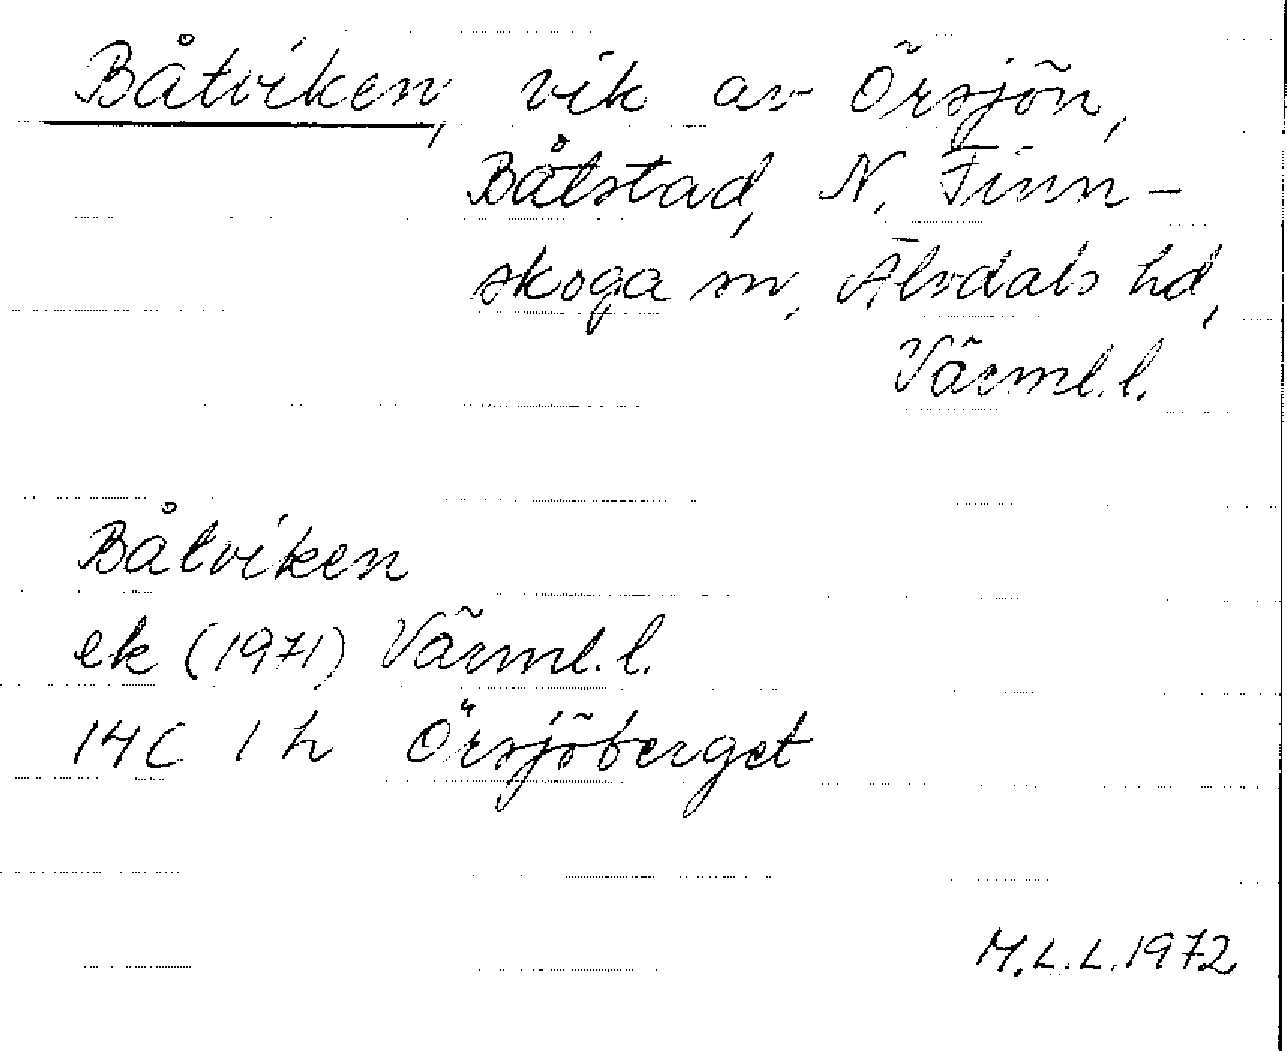 Båtviken, vik av Örsjön,
Båtstad, N. Finn-
skoga sn, Älvdals hd,
Värml. l.
Båtviken
ek (1971) Värml. l.
14C 1h Örsjöberget
M.L.L. 1972